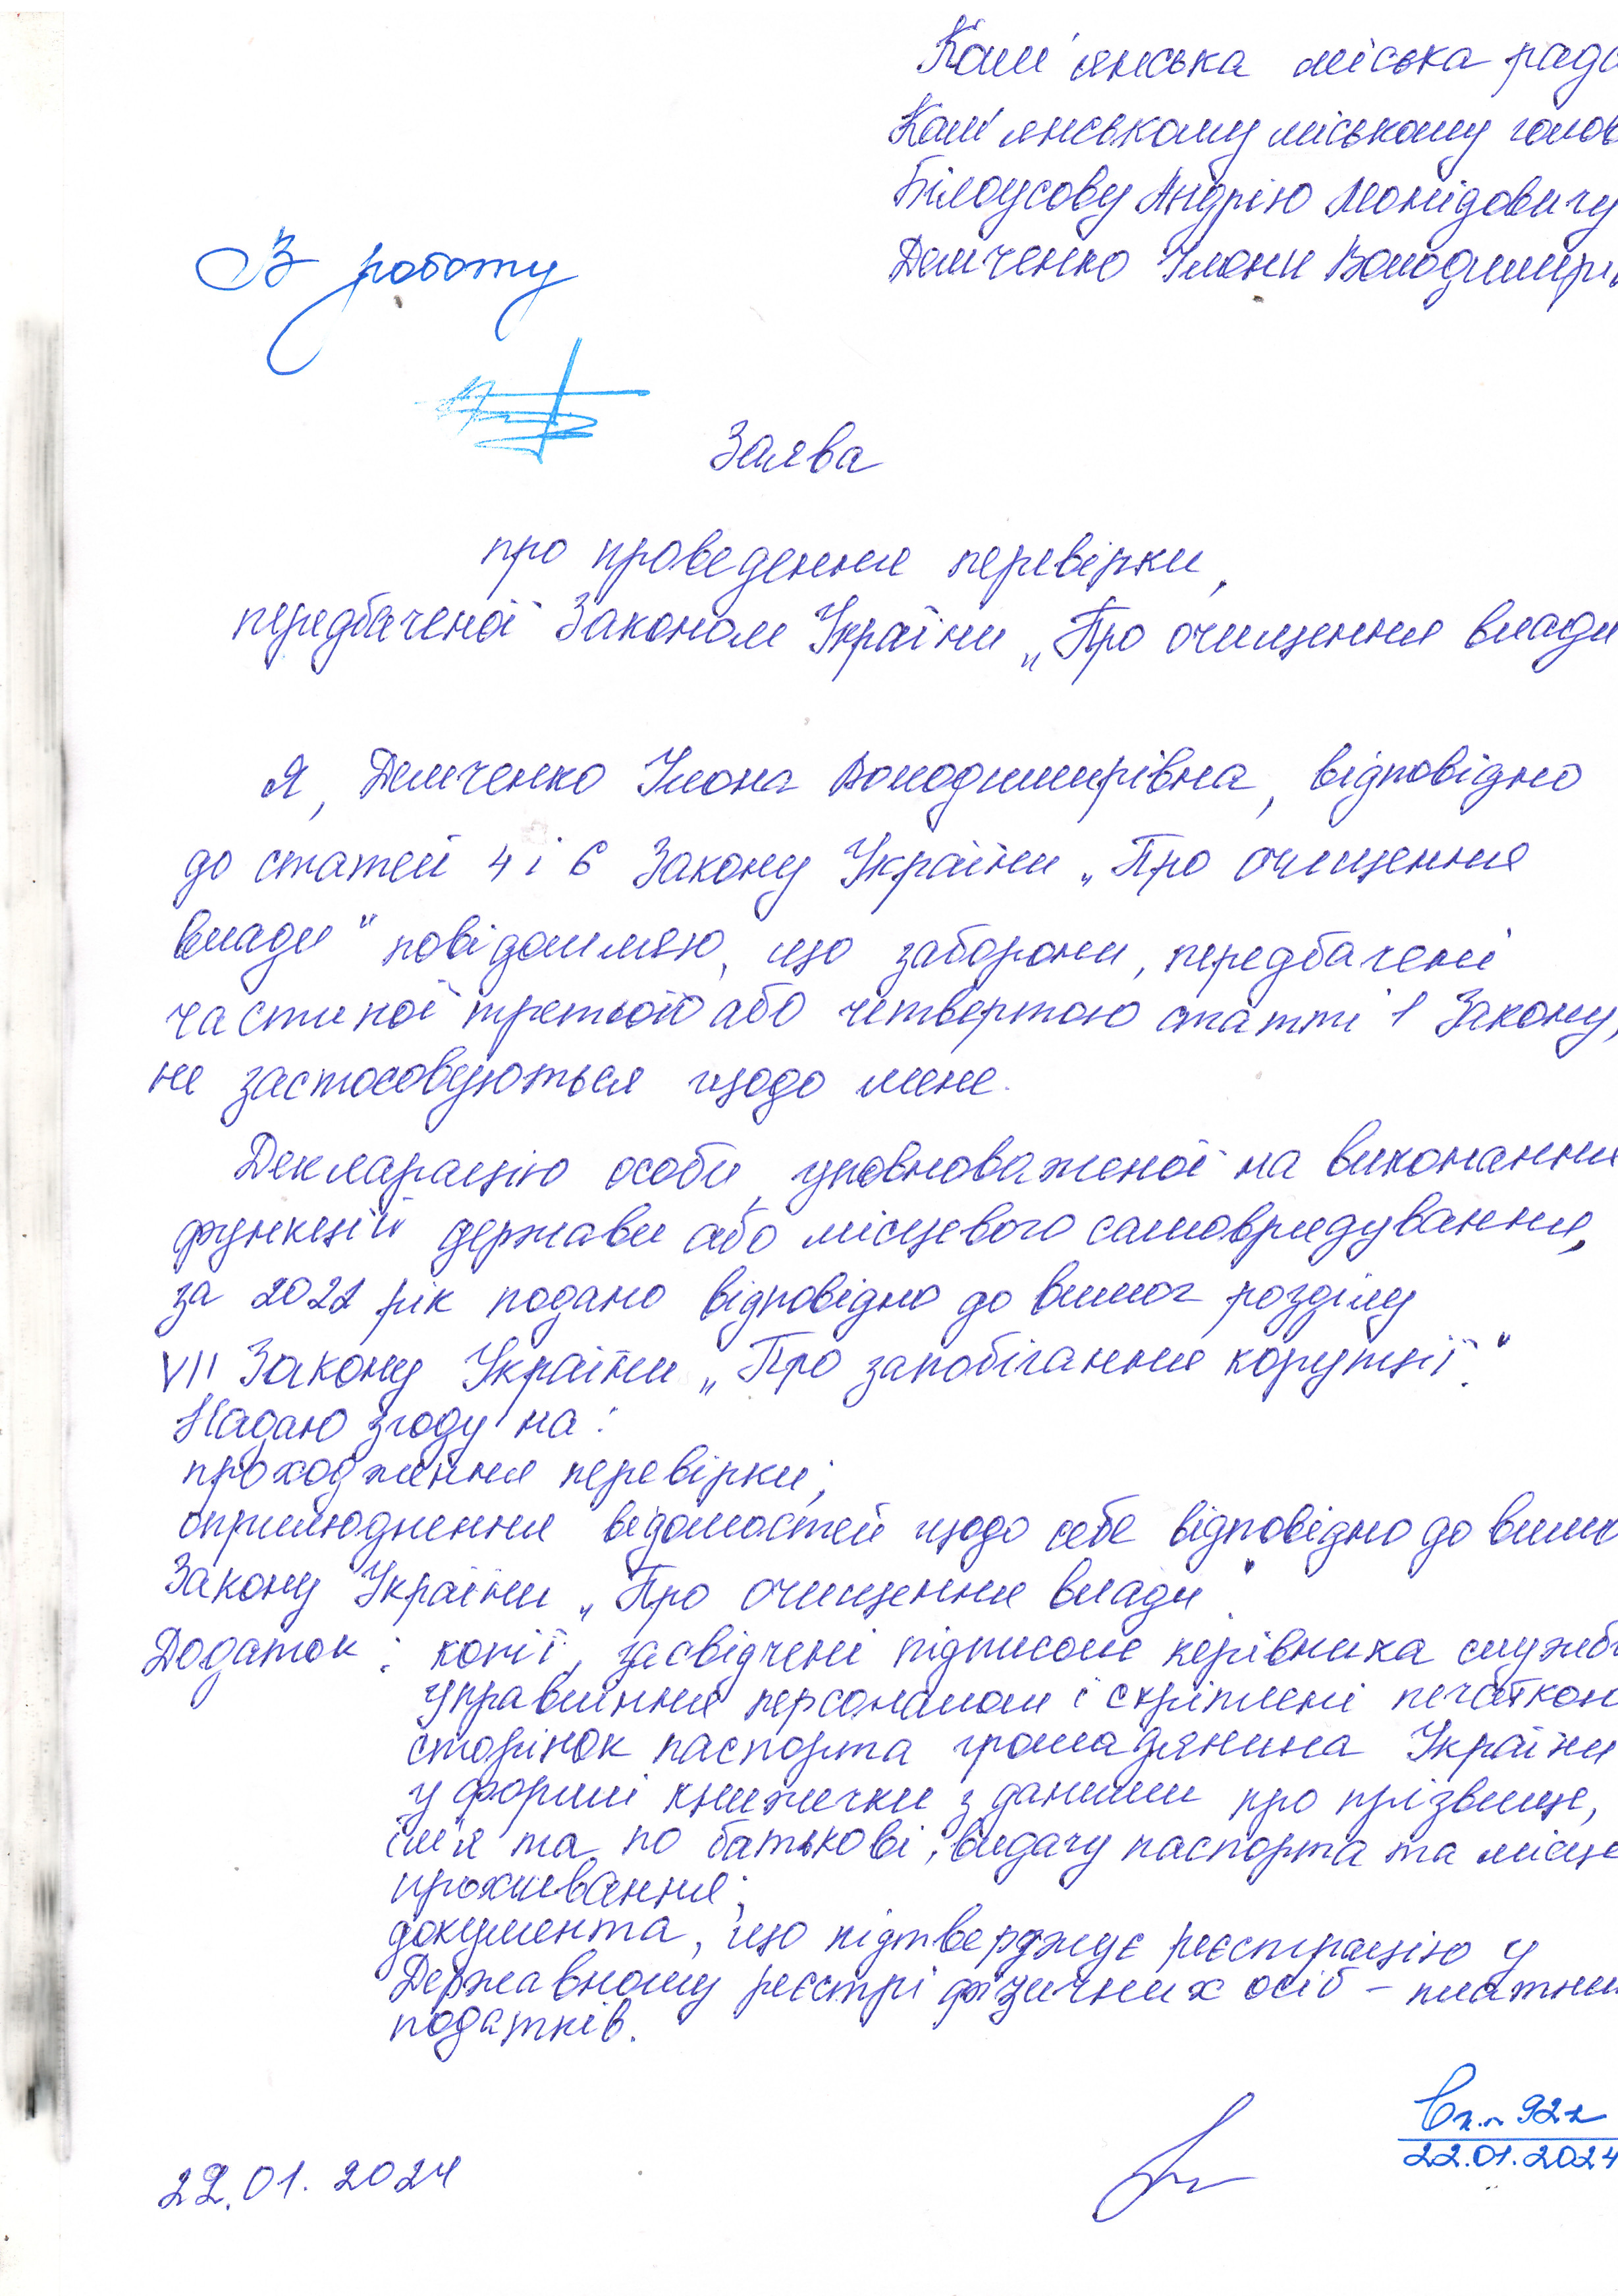 Кам'янська міська рада
Кам'янському міському голов
Білоусову Андрію Леонідовичу
Демченко Ілони Володимирів
В роботу
Заява
про проведення перевірки,
передбаченої Законом України „Про очищення влади
Я, Демченко Ілона Володимирівна, відповідно
до статей 4 і 6 Закону України „Про очищення
влади" повідомляю, що заборони, передбачені
частиною третьою або четвертою статті 1 Закону,
не застосовуються щодо мене.
Декларацію особи, уповноваженої на виконання
функцій держави або місцевого самоврядування,
за 2022 рік подано відповідно до вимог розділу
VII Закону України „Про запобігання корупції".
Надаю згоду на:
проходження перевірки;
оприлюднення відомостей щодо себе відповідно до вимо
Закону України „Про очищення влади".
Додаток: копії, засвідчені підписом керівника служб
управління персоналом і скріплені печаткою
сторінок паспорта громадянина України
у формі книжечки з даними про прізвище,
ім'я та по батькові, видачу паспорта та місце
проживання;
документа, що підтверджує реєстрацію у
Державному реєстрі фізичних осіб – платни
податків.
22.01.2024
22.01.2024